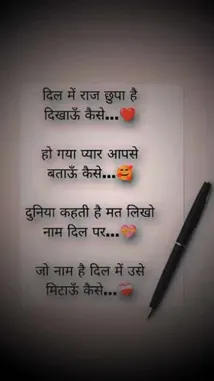 दिल में राज छुपा है
दिखाऊँ कैसे...❤️
हो गया प्यार आपसे
बताऊँ कैसे...🥰
दुनिया कहती है मत लिखो
नाम दिल पर...💝
जो नाम है दिल में उसे
मिटाऊँ कैसे...❤️‍🩹